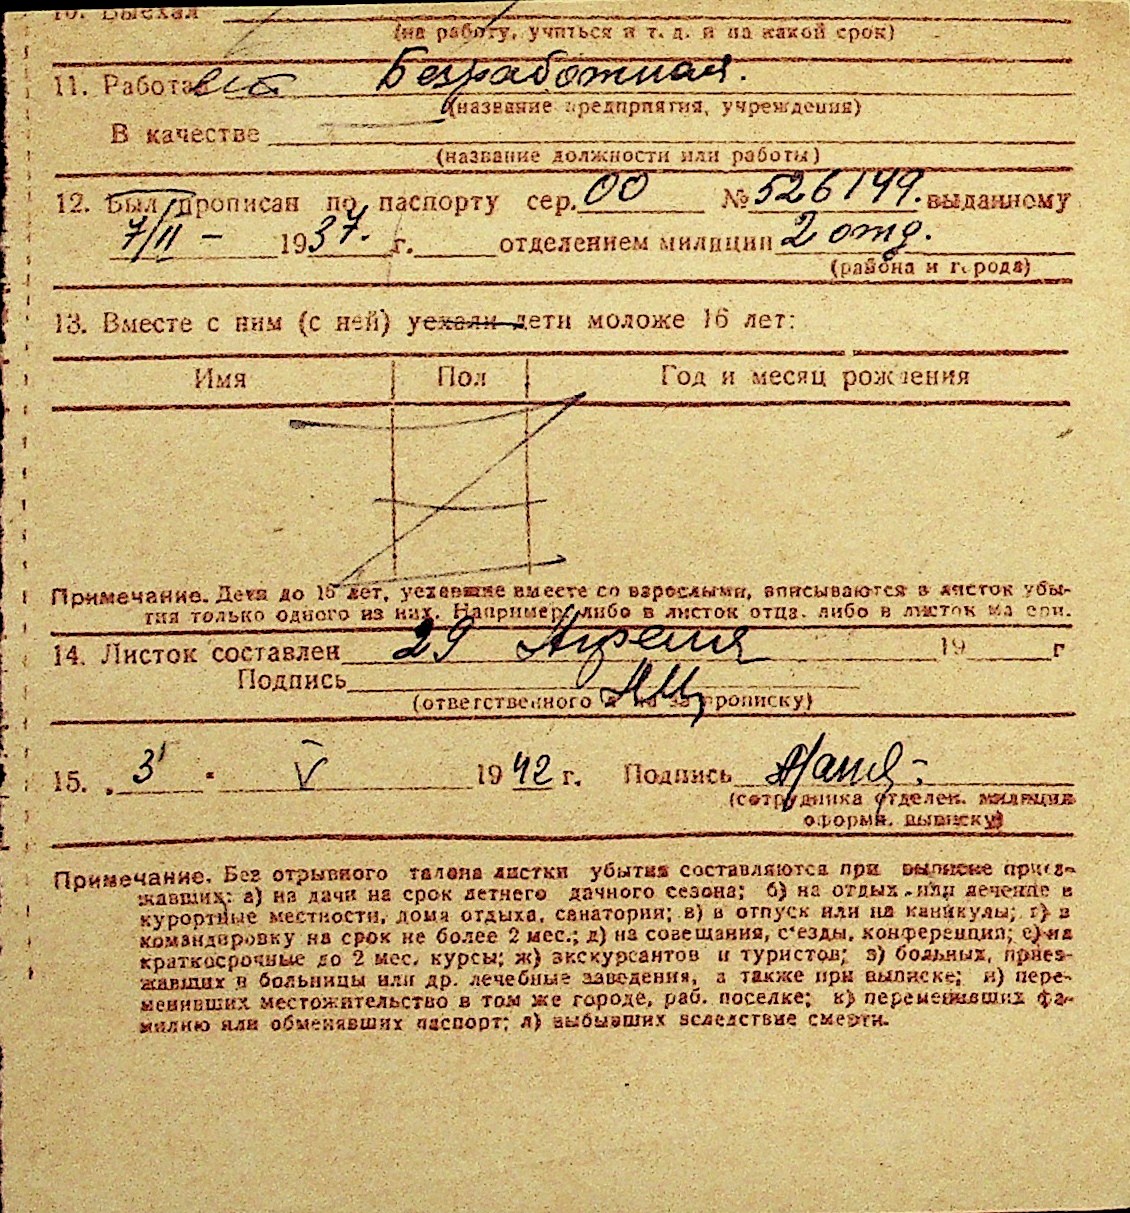 10. Выехал
(на работу, учиться и т. д. и на какой срок)
11. Работает Безработная.
(название предприятия, учреждения)
В качестве
(название должности или работы)
12. Был прописан по паспорту сер. 00 № 526149. выданному
7/II – 1937. г. отделением милиции 2 отд.
(района и города)
13. Вместе с ним (с ней) уехали дети моложе 16 лет:
Имя Пол Год и месяц рождения
Примечание. Дети до 16 лет, уехавшие вместе со взрослыми, вписываются в листок убы-
тия только одного из них. Например, либо в листок отца, либо в листок матери.
14. Листок составлен 29 Апреля 19 г
Подпись
(ответственного за прописку)
15. 3 V 1942 г. Подпись
(сотрудника отделен. милиции
оформ. выписку)
Примечание. Без отрывного талона листки убытия составляются при выписке приез-
жавших: а) на дачи на срок летнего дачного сезона; б) на отдых или лечение в
курортные местности, дома отдыха, санатории; в) в отпуск или на каникулы; г) в
командировку на срок не более 2 мес.; д) на совещания, с'езды, конференции; е) на
краткосрочные до 2 мес. курсы; ж) экскурсантов и туристов; з) больных, приез-
жавших в больницы или др. лечебные заведения, а также при выписке; и) пере-
менивших местожительство в том же городе, раб. поселке; к) переменивших фа-
милию или обменявших паспорт; л) выбывших вследствие смерти.